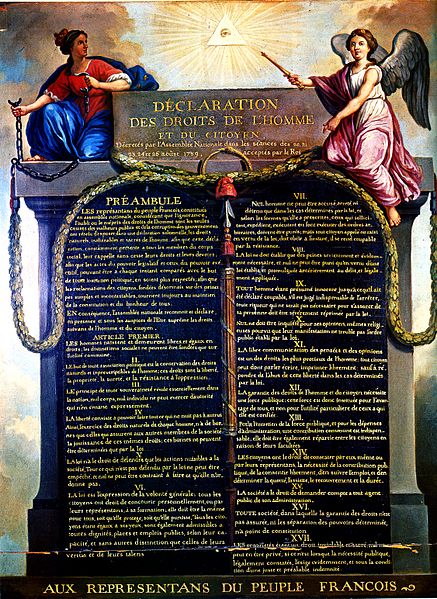 DÉCLARATION
DES DROITS DE L'HOMME
ET DU CITOYEN,
Décretés par l'Assemblée Nationale dans les séances des 20, 21
23, 24 et 26 août 1789, acceptés par le Roi
PRÉAMBULE
LES représentans du peuple François constitués
en assemblée nationale, considérant que l'ignorance,
l'oubli ou le mépris des droits de l'homme sont les seules
causes des malheurs publics et de la corruption des gouvernemens
ont résolu d'exposer dans une déclaration solemnelle, les droits
naturels, inaliénables et sacrés de l'homme; afin que cette décla-
ration, constamment présente a tous les membres du corps
social, leur rappelle sans cesse leurs droits et leurs devoirs;
afin que les actes du pouvoir législatif et ceux du pouvoir exé-
cutif, pouvant être a chaque instant comparés avec le but
de toute institution politique, en soient plus respectés; afin que
les reclamations des citoyens, fondées désormais sur des princi-
pes simples et incontestables, tournent toujours au maintien
de la constitution et du bonheur de tous.
EN conséquence, l'assemblée nationale reconnoit et déclare
en presence et sous les auspices de l'Etre suprême les droits
suivans de l'homme et du citoyen.
ARTICLE PREMIER.
LES hommes naissent et demeurent libres et égaux en
droits; les distinctions sociales ne peuvent être fondées que sur
l'utilité commune.
II.
LE but de toute association politique est la conservation des droits
naturels et imprescriptibles de l'homme; ces droits sont la liberté,
la propriété, la sureté, et la résistance à l'oppression.
III.
LE principe de toute souveraineté réside essentiellement dans
la nation, nul corps, nul individu ne peut exercer d'autorité
qui n'en émane expressement.
IV.
LA liberté consiste a pouvoir faire tout ce qui ne nuit pas à autrui
Ainsi, l'exercice des droits naturels de chaque homme, n'a de bor-
nes que celles qui assurent aux autres membres de la société
la jouissance de ces mêmes droits; ces bornes ne peuvent
être déterminées que par la loi
V.
LA loi n'a le droit de défendre que les actions nuisibles a la
société. Tout ce qui n'est pas défendu par la loi ne peut être
empêché, et nul ne peut être contraint à faire ce qu'elle n'or-
donne pas.
VI.
LA loi est l'expression de la volonté générale; tous les
citoyens ont droit de concourir personnellement, ou par
leurs représentans, à sa formation; elle doit être la même
pour tous, soit qu'elle protege, soit qu'elle punisse, Tous les cito-
yens étant égaux à ses yeux, sont également admissibles à
toutes dignités, places et emplois publics, selon leur ca-
pacité, et sans autres distinctions que celles de leurs
vertus et de leurs talens.
VII.
NUL homme ne peut être accusé, arreté, ni
détenu que dans les cas déterminés par la loi, et
selon les formes qu'elle a prescrites, ceux qui sollici-
tent, expédient, exécutent ou font exécuter des ordres ar-
bitraires, doivent être punis; mais tout citoyen appelé ou saisi
en vertu de la loi, doit obéir a l'instant, il se rend coupable
par la résistance.
VIII.
LA loi ne doit établir que des peines strictement et évidem-
ment nécessaires, et nul ne peut être puni qu'en vertu d'une
loi établie et promulguée antérieurement au délit, et légale-
ment appliquée.
IX.
TOUT homme étant présumé innocent jusqu'à ce qu'il ait
été déclaré coupable, s'il est jugé indispensable de l'arrêter,
toute rigueur qui ne serait pas nécessaire pour s'assurer de
sa personne doit être sévèrement réprimée par la loi.
X.
NUL ne doit être inquiété pour ses opinions, mêmes reli-
gieuses pourvu que leur manifestation ne trouble pas l'ordre
public établi par la loi.
XI.
LA libre communication des pensées et des opinions
est un des droits les plus précieux de l'homme; tout citoyen
peut donc parler écrire, imprimer librement: sauf à ré-
pondre de l'abus de cette liberté dans les cas déterminés
par la loi.
XII.
LA garantie des droits de l'homme et du citoyen nécessite
une force publique; cette force est donc instituée pour l'avan-
tage de tous, et non pour l'utilité particuliere de ceux a qui
elle est confiée.
XIII.
POUR l'entretien de la force publique, et pour les dépenses
d'administration, une contribution commune est indispen-
sable; elle doit être également répartie entre les citoyens en
raison de leurs facultés.
XIV.
LES citoyens ont le droit de constater par eux même ou
par leurs représentans, la nécessité de la contribution pub-
lique, de la consentir librement, d'en suivre l'emploi, et d'en
déterminer la quotité, l'assiette, le recouvrement et la durée.
XV.
LA société a le droit de demander compte a tout agent
public de son administration.
XVI.
TOUTE société, dans laquelle la garantie des droits n'est
pas assurée, ni la séparation des pouvoirs déterminée,
n'a point de constitution
XVII.
LES propriétés étant un droit inviolable et sacré, nul ne
peut en être privé, si ce n'est lorsque la nécessité publique,
légalement constatée, l'exige évidemment, et sous la condi-
tion d'une juste et préalable indemnité.
AUX REPRESENTANS DU PEUPLE FRANCOIS